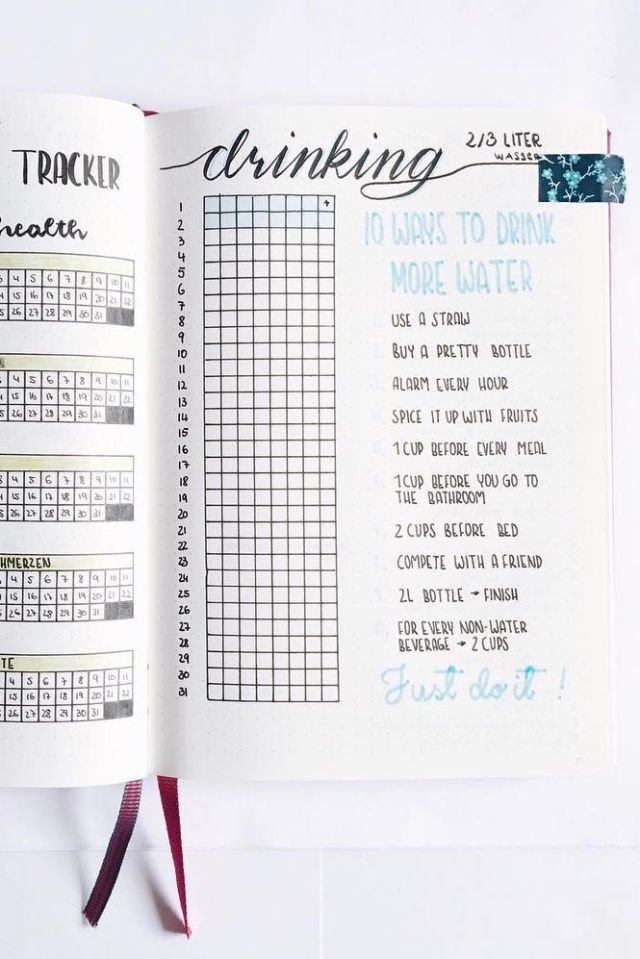 TRACKER
health
4 5 6 7 8 9 10 11
15 16 17 18 19 20 21 22
26 27 28 29 30 31
4 5 6 7 8 9 10 11
15 16 17 18 19 20 21 22
26 27 28 29 30 31
4 5 6 7 8 9 10 11
15 16 17 18 19 20 21 22
26 27 28 29 30 31
HMERZEN
4 5 6 7 8 9 10 11
15 16 17 18 19 20 21 22
26 27 28 29 30 31
TE
4 5 6 7 8 9 10 11
15 16 17 18 19 20 21 22
26 27 28 29 30 31
drinking
2/3 LITER
WASSER
1
2
3
4
5
6
7
8
9
10
11
12
13
14
15
16
17
18
19
20
21
22
23
24
25
26
27
28
29
30
31
+
10 WAYS TO DRINK
MORE WATER
1. USE A STRAW
2. BUY A PRETTY BOTTLE
3. ALARM EVERY HOUR
4. SPICE IT UP WITH FRUITS
5. 1 CUP BEFORE EVERY MEAL
6. 1 CUP BEFORE YOU GO TO
THE BATHROOM
7. 2 CUPS BEFORE BED
8. COMPETE WITH A FRIEND
9. 2L BOTTLE → FINISH
10. FOR EVERY NON-WATER
BEVERAGE → 2 CUPS
Just do it !